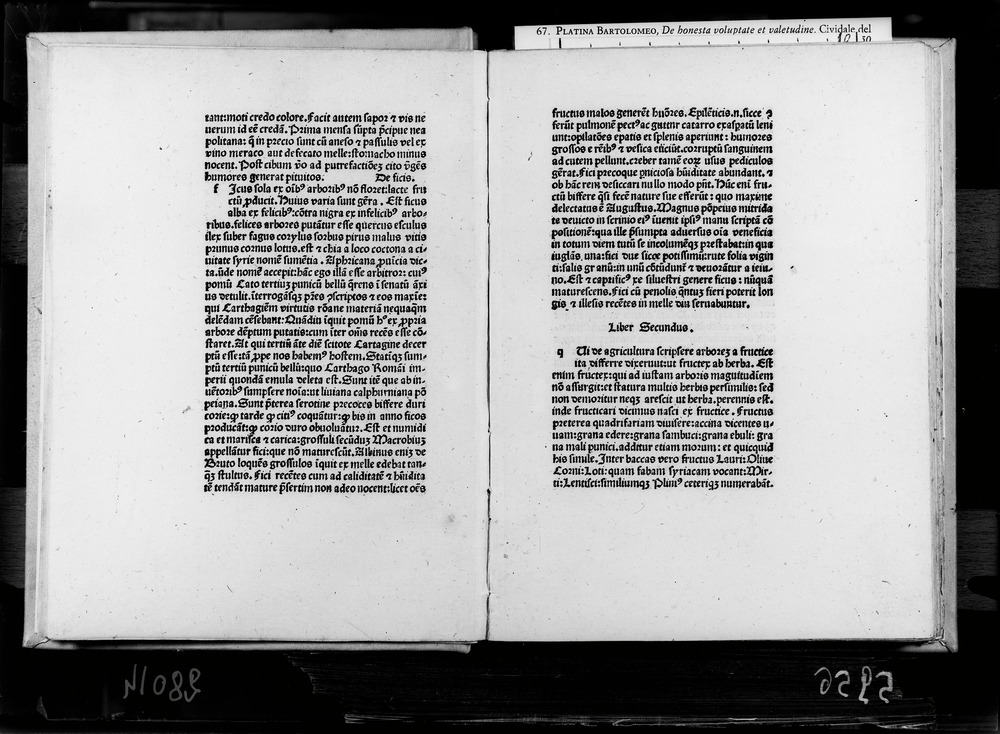 67. PLATINA BARTOLOMEO, De honesta voluptate et valetudine. Cividale del
tant:moti credo colore. Facit autem sapor ⁊ vis ne
uerum id eē credā. Prima mensa sūpta p̄cipue nea
politana: q̄ in precio sunt cū aneso ⁊ passulis vel ex
vino meraco aut defecato melle:stomacho minus
nocent. Post cibum vo ad putrefactiōeȝ cito v̄gēs
humores generat pituitos. De ficis.
f Icus sola ex oībꝰ arboribꝰ nō floret:lacte fru
ctū ꝓducit. Huius varia sunt gn̄a. Est ficus
alba ex felicibꝰ:cōtra nigra ex infelicibꝰ arbo
ribus. felices arbores putātur esse quercus esculus
ilex suber fagus corylus sorbus pirus malus vitis
prunus cornus lotus. est ⁊ chia a loco coctona a ci
uitate syrie nomē sumētia. Aphricana ꝓuīcia dic-
ta. ūde nomē accepit:hāc ego illā esse arbitror: cuiꝰ
pomū Cato tertiuȝ punicū bellū q̄rens ī senatū āxi
us detulit. īterrogāsqȝ pr̄es ꝯscriptos ⁊ eos maxīe:
qui Carthagīem virtutis rōane materiā nequaq̄m
delēdam cēsebant: Quādiu īquit pomū hᵒ ex ꝓpria
arbore dēptum putatis:cum iter om̄s recēs esse cō-
staret. At qui tertiū āte diē scitote Cartagine decer
ptū esse:tā ꝓpe nos habemꝰ hostem. Statīqȝ sum-
ptū tertiū punicū bellū:quo Carthago Romāi im-
perii quondā emula deleta est. Sunt itē que ab in-
uētoribꝰ sumpsere noīa:ut liuiana calphurniana pō
peiana. Sunt p̄terea serotine precoces biffere duri
corie:ꝙ tarde ꝙ citiꝰ coquātur:ꝙ bis in anno ficos
producāt:ꝙ corio duro obuoluātur. Est et numidi
ca et marisca ⁊ carica:grossuli secūduȝ Macrobiuȝ
appellātur fici:que nō maturescūt. Albinus eniȝ de
Bruto loquēs grossulos īquit ex melle edebat tan-
q̄ȝ stultus. Fici recētes cum ad caliditatē ⁊ hūidita
tē tendāt mature p̄sertim non adeo nocent:licet oēs
fructus malos generēt huōres. Epilēticis. n. sicce ꝯ
ferūt pulmonē pectꝰ ac guttur catarro exaspatū leni
unt:opilatōes epatis et splenis aperiunt: humores
grossos e rēibꝰ ⁊ vesica eiiciūt. corruptū sanguinem
ad cutem pellunt. creber tamē eoꝝ usus pediculos
gēerat. Fici precoque pniciosa hūiditate abundant. ⁊
ob hāc reȝ desiccari nullo modo pn̄t. Hāc eni fru-
ctū biffere q̄si fecē nature sue efferūt: quo maxime
delectatus ē Augustus. Magnus pōpeius mitrida
te deuicto in scrinio eiꝰ īuenit ipsiꝰ manu scriptā cō
positionē:qua ille p̄sumpta aduersus oīa veneficia
in totum diem tutū se incolumēqȝ prestabat:in qua
iuglās. una:fici due sicce potissimū:rute folia vigin
ti:salis granū:in unū cōtūdunt ⁊ deuorātur a ieiu-
no. Est ⁊ caprificꝰ ex siluestri genere ficus: nūquā
maturescens. Fici cū penolis q̄ntuȝ fieri poterit lon
gis ⁊ illesis recētes in melle diu seruabuntur.
Liber Secundus.
q Ui de agricultura scripsere arboreȝ a fructice
ita differre dixerunt:ut frutex ab herba. Est
enim fructex:qui ad iustam arboris magnitudīem
nō assurgit:et statura multis herbis persimilis: sed
non demoritur neqȝ arescit ut herba. perennis est.
inde fructicari dicimus nasci ex fructice. Fructus
preterea quadrifariam diuisere:accina dicentes u-
uam:grana edere:grana sambuci:grana ebuli: gra
na mali punici. additur etiam morum: et quicquid
his simile. Inter baccas vero fructus Lauri: Oliue
Corni: Loti: quam fabam syriacam vocant: Mir-
ti: Lentisci:similiumqȝ Pliniꝰ ceteriqȝ numerabāt.
28014
5956